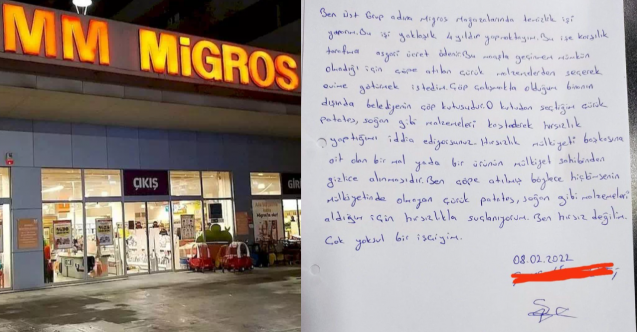 MM MİGROS
ÇIKIŞ
GİR
Ben Üst Grup adına Migros Mağazalarında temizlik işi
yaparım. Bu işi yaklaşık 4 yıldır yapmaktayım. Bu işe karşılık
tarafıma asgari ücret ödenir. Bu maaşla geçinmem mümkün
olmadığı için çöpe atılan çürük malzemelerden seçerek
evime götürmek istedim. Çöp çalışmakta olduğum binanın
dışında belediyenin çöp kutusudur. O kutudan seçtiğim çürük
patates, soğan gibi malzemeleri kastederek hırsızlık
yaptığımı iddia ediyorsunuz. Hırsızlık mülkiyeti başkasına
ait olan bir mal yada bir ürünün mülkiyet sahibinden
gizlice alınmasıdır. Ben çöpe atılmış böylece hiçkimsenin
mülkiyetinde olmayan çürük patates, soğan gibi malzemeleri
aldığım için hırsızlıkla suçlanıyorum. Ben hırsız değilim.
Çok yoksul bir işçiyim.
08.02.2022